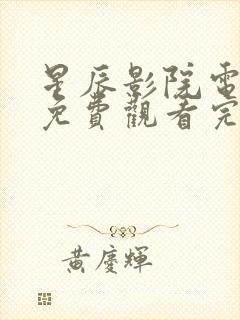 星辰影院電
免費觀看完
黃慶輝